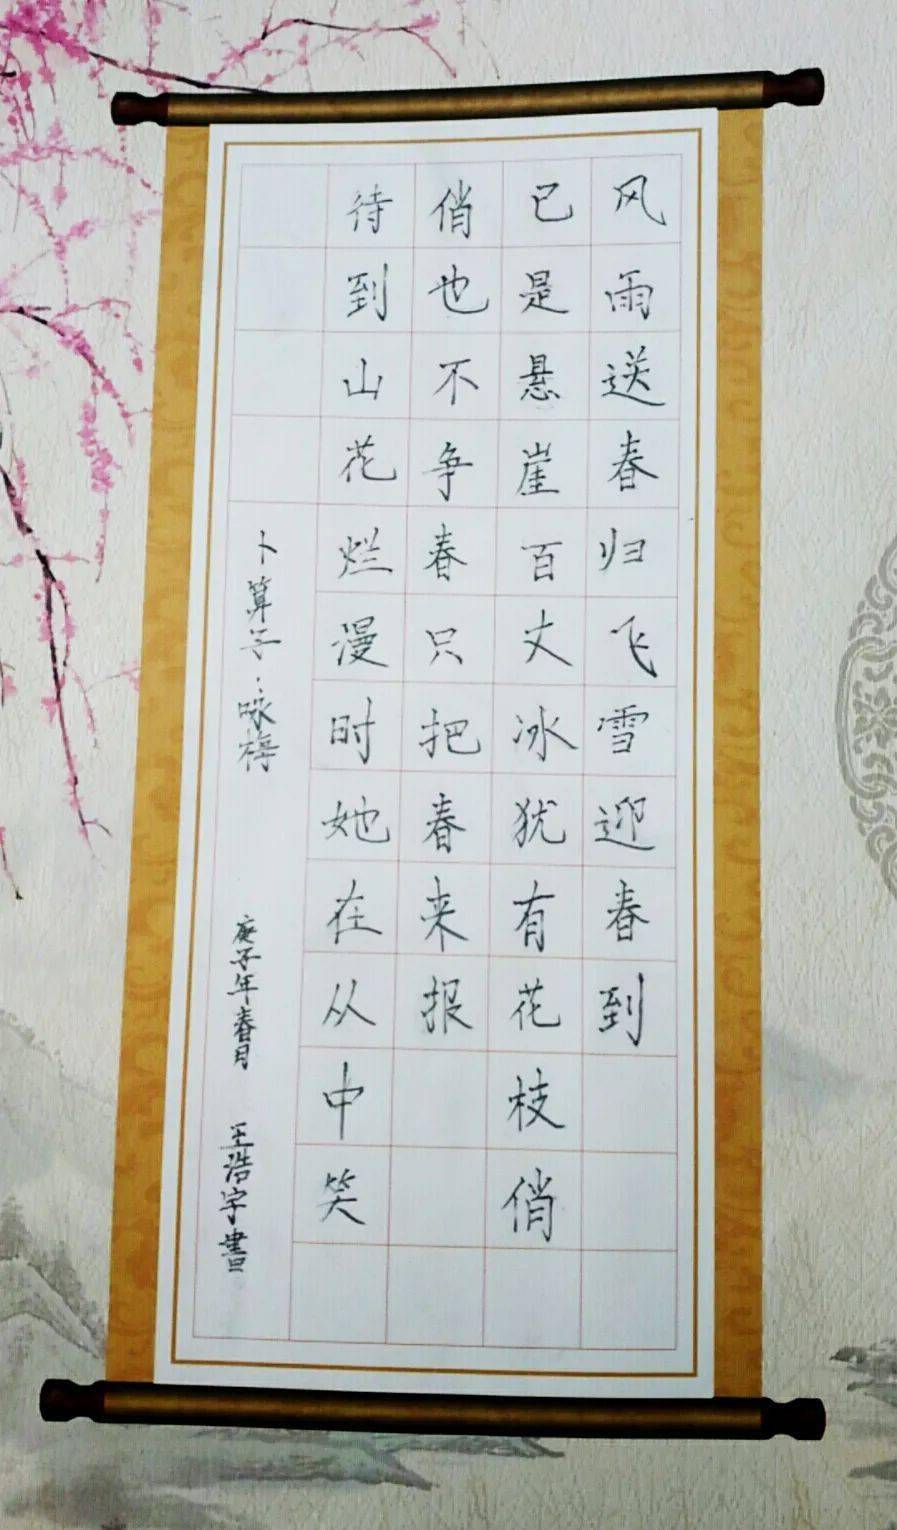 风雨送春归飞雪迎春到
已是悬崖百丈冰犹有花枝俏
俏也不争春只把春来报
待到山花烂漫时她在从中笑
卜算子:咏梅 庚子年春月 王浩宇書